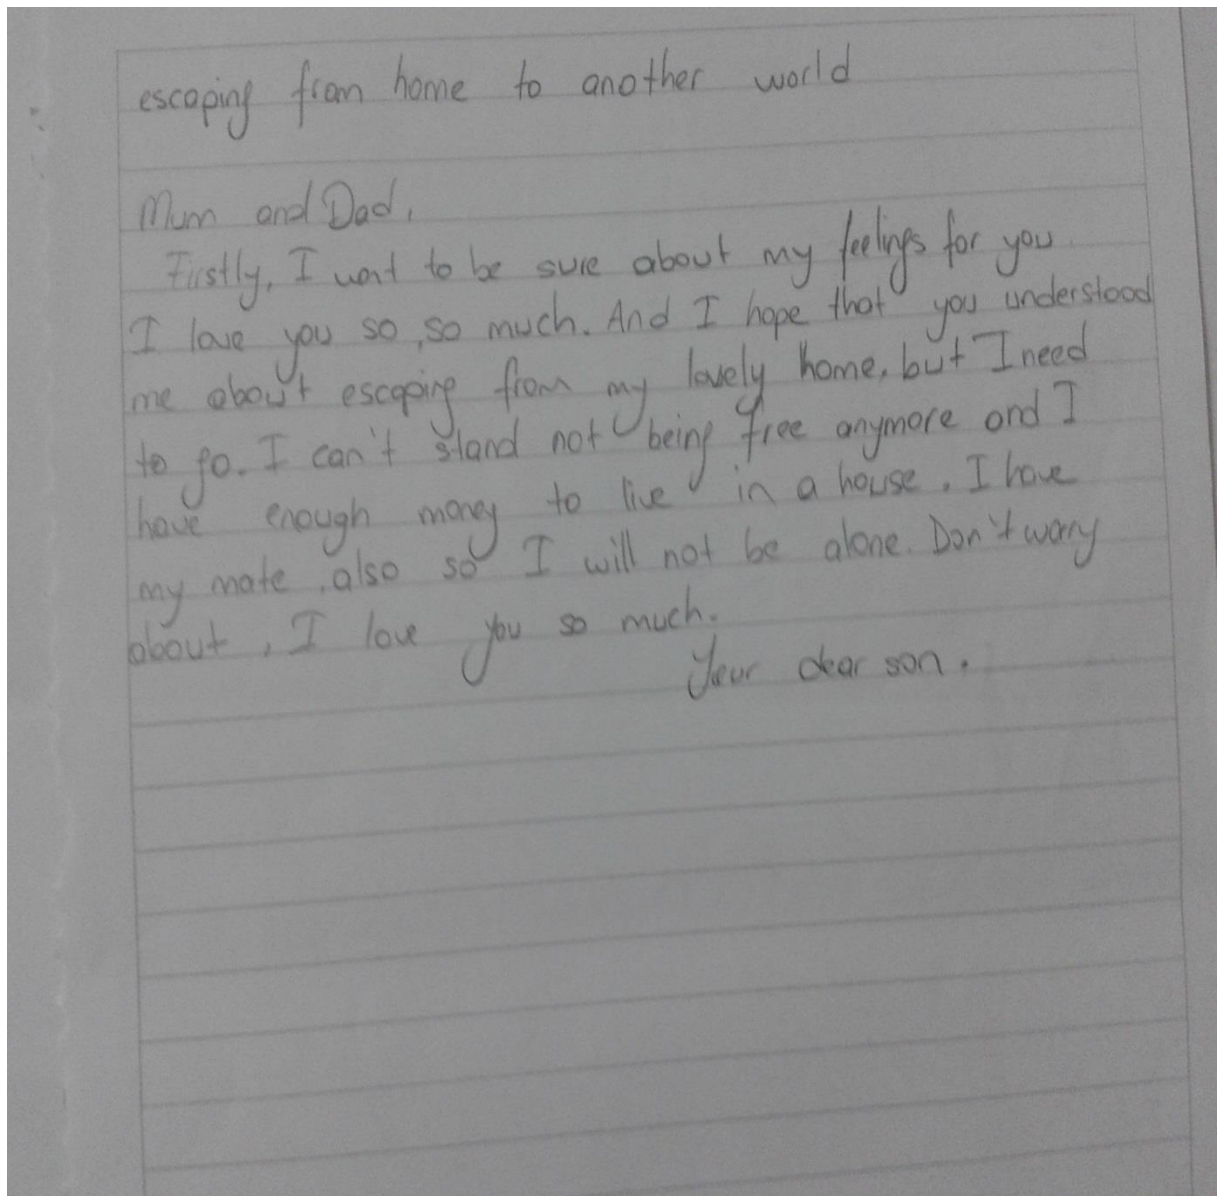 escaping from home to another world
Mum and Dad,
Firstly, I want to be sure about my feelings for you
I love you so, so much. And I hope that you understood
me about escaping from my lovely home, but I need
to go. I can't stand not being free anymore and I
have enough money to live in a house. I have
my mate, also so I will not be alone. Don't worry
about, I love you so much.
Your dear son.